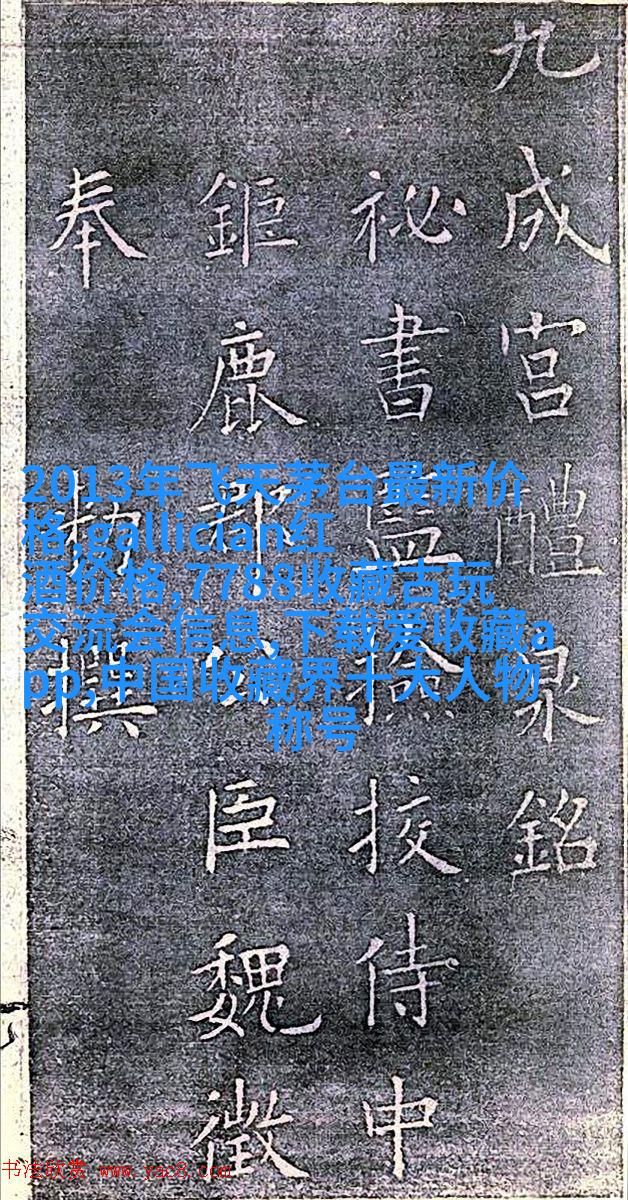 九成宫醴泉銘
祕書監撿挍侍中
鉅鹿郡公臣魏徵
奉勑撰
2013年飞天茅台最新价
格,gallician红
酒价格,7788收藏古玩
交流会信息,下载爱收藏a
pp,中国收藏界十大人物
称号
书法欣赏 www.yac8.com